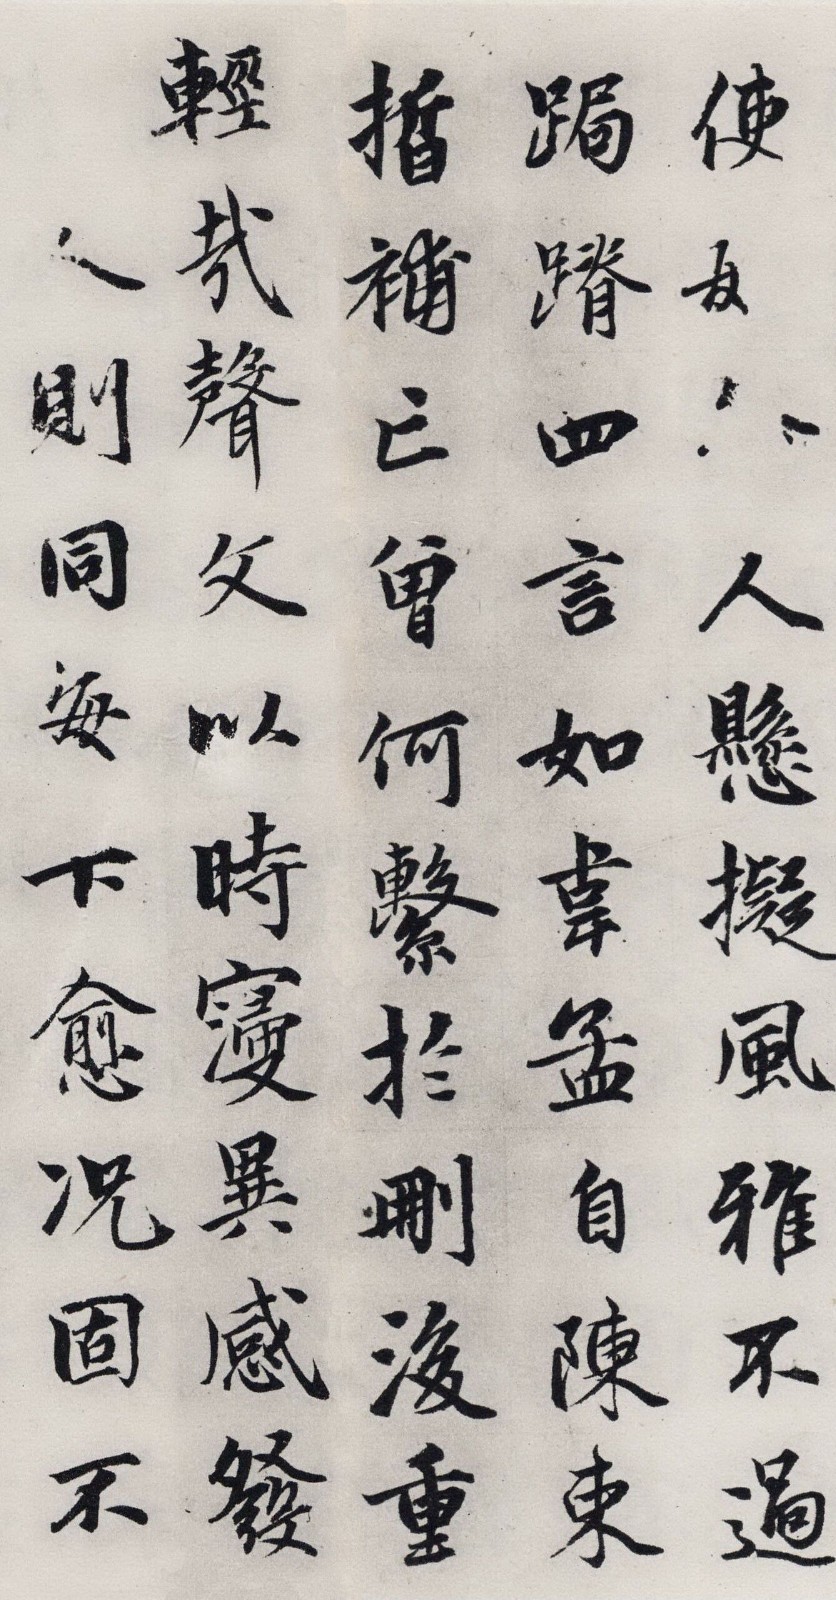 使 人懸擬風雅不過
跼蹐四言如韋孟自陳東
晢補亡曾何繫於刪後重
輕哉聲文以時變異感發
人則同每下愈況固不